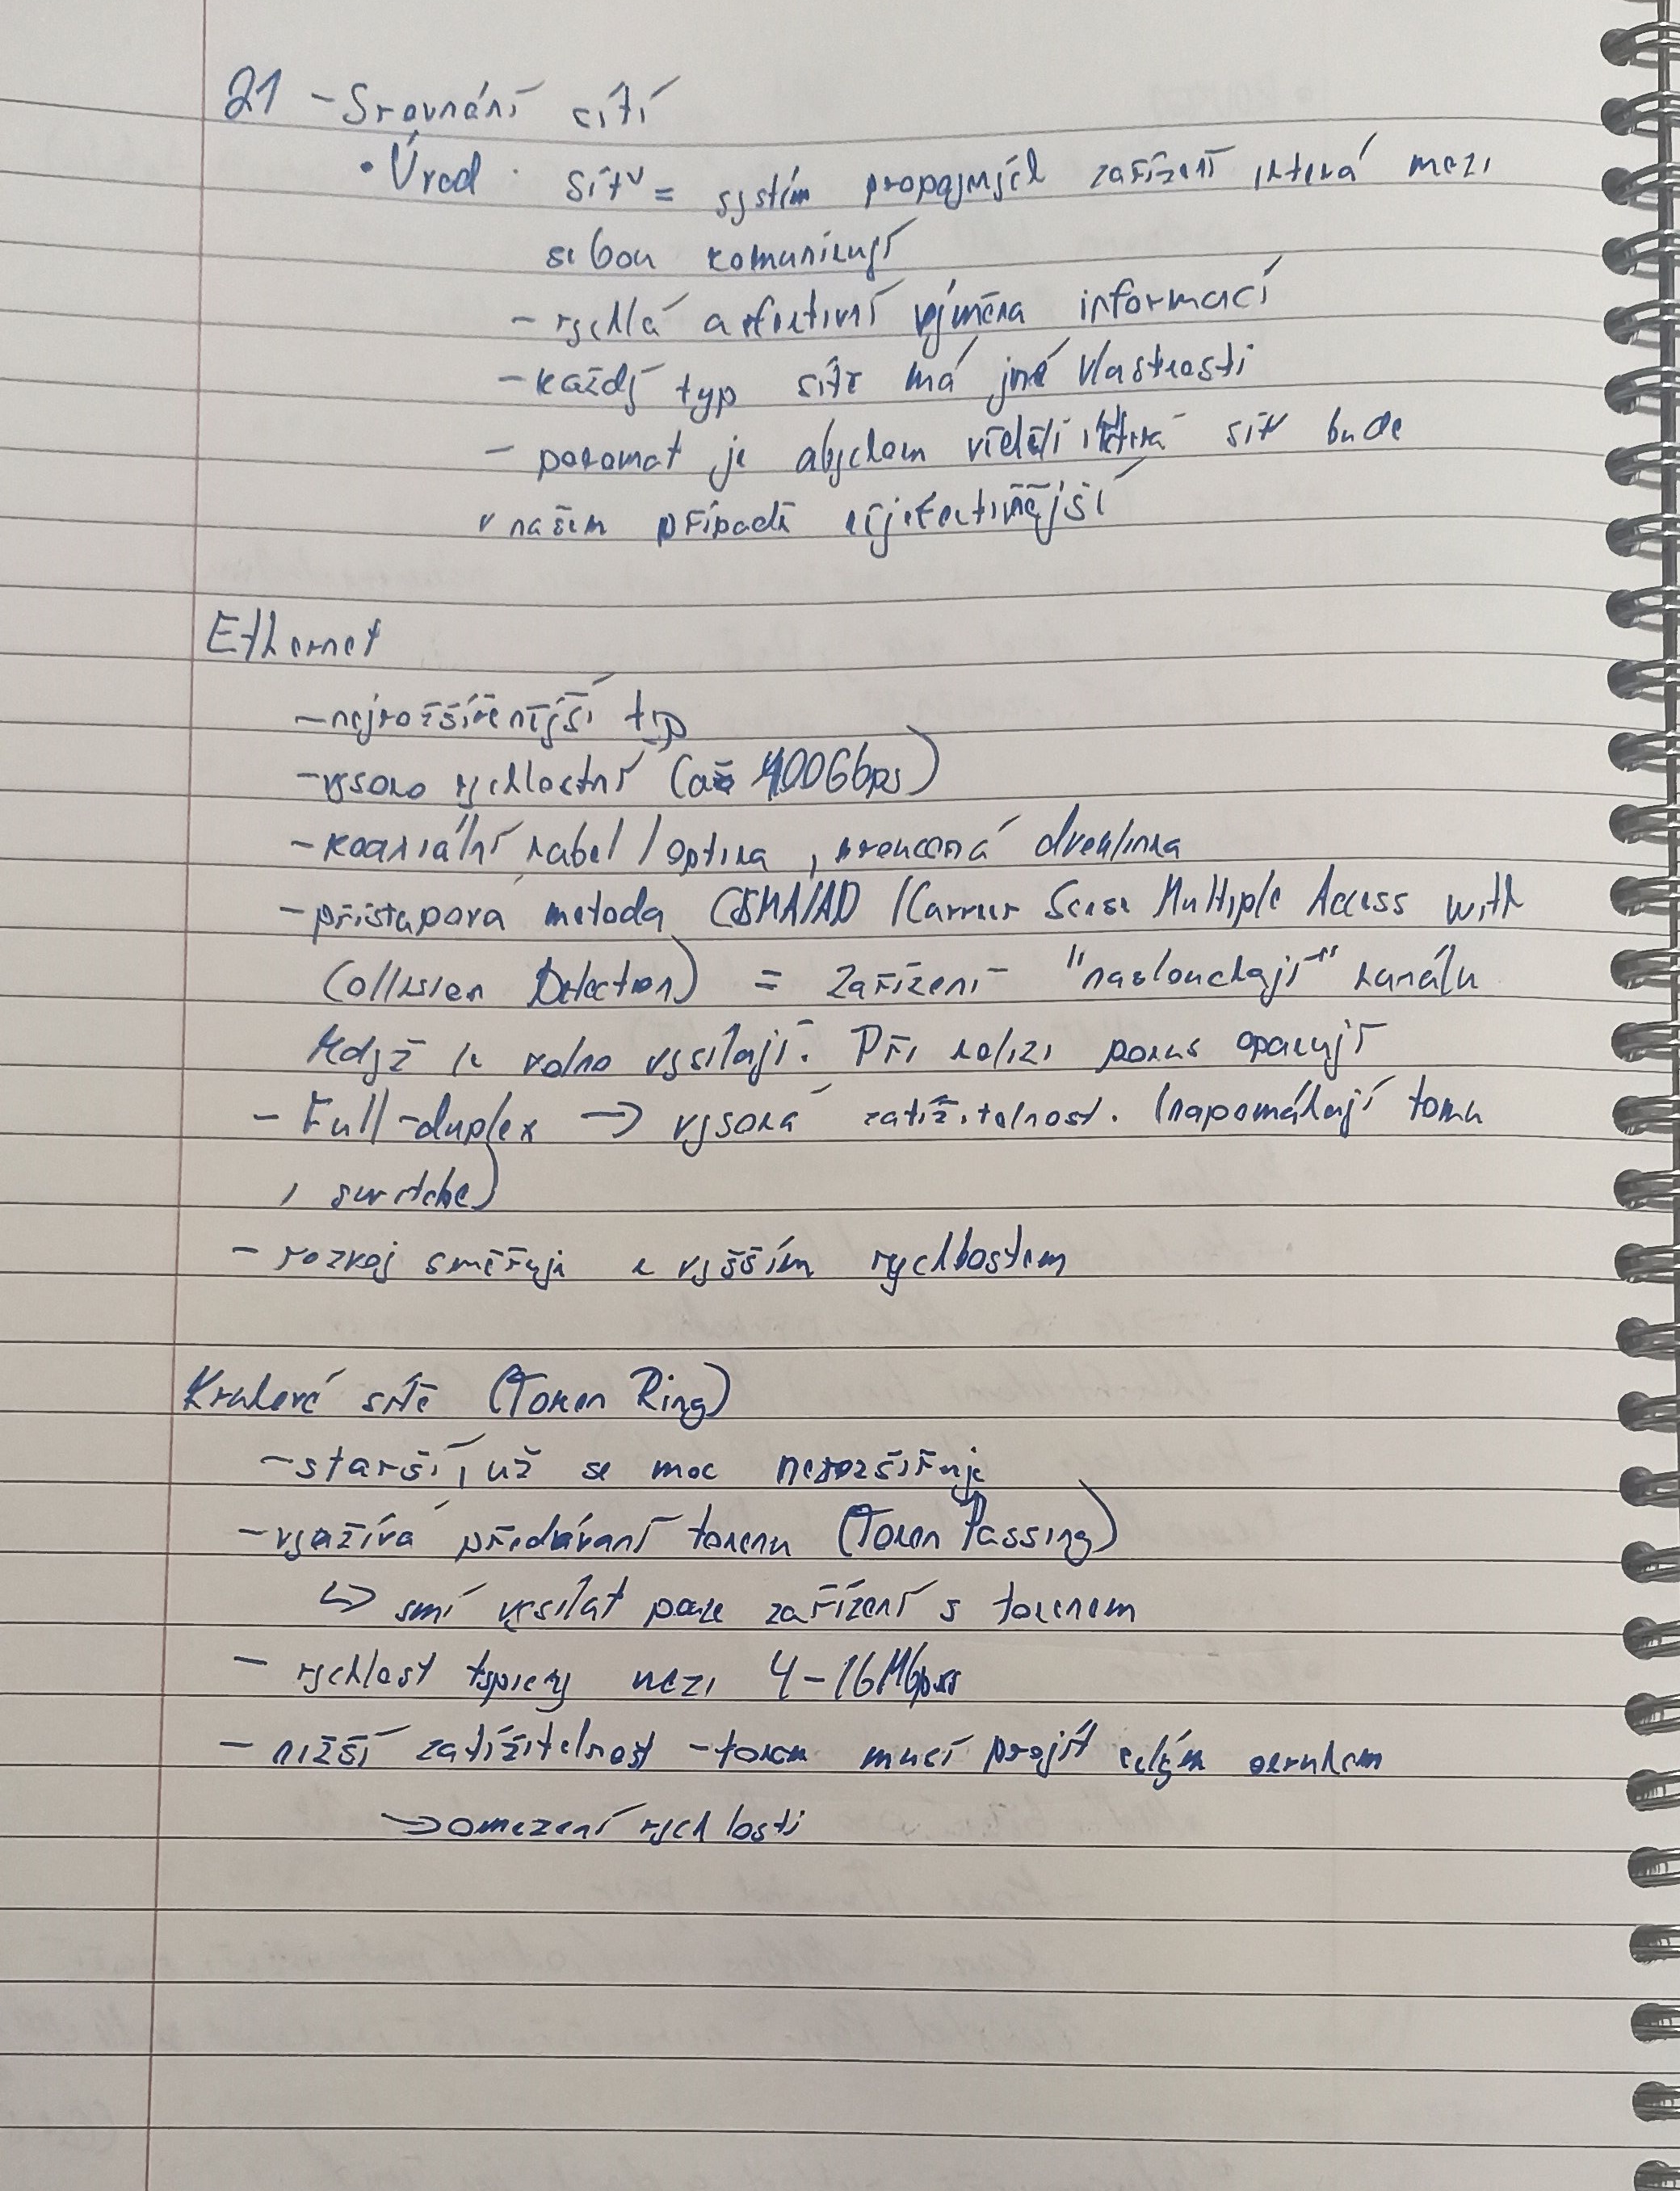 21 - Srovnání sítí
• Úvod síť = systém propojených zařízení která mezi
sebou komunikují
- rychlá a efektivní výměna informací
- každý typ sítě má jiné vlastnosti
- porovnat je abychom věděli která síť bude
v našem případě nejefektivnější
Ethernet
- nejrozšířenější typ
- vysoko rychlostní (až 400Gbps)
- koaxiální kabel / optika, kroucená dvoulinka
- přístupová metoda CSMA/AD (Carrier Sense Multiple Access with
Collision Detection) = Zařízení "naslouchají" kanálu
Když je volno vysílají. Při kolizi pokus opakují
- Full-duplex → vysoká zatížitelnost. (napomáhají tomu
i switche)
- rozvoj směřuje k vyšším rychlostem
Kruhové sítě (Token Ring)
- starší, už se moc nerozšiřuje
- využívá předávání tokenu (Token Passing)
↳ smí vysílat pouze zařízení s tokenem
- rychlost typicky mezi 4-16Mbps
- nižší zatížitelnost - token musí projít celým okruhem
→ omezení rychlosti